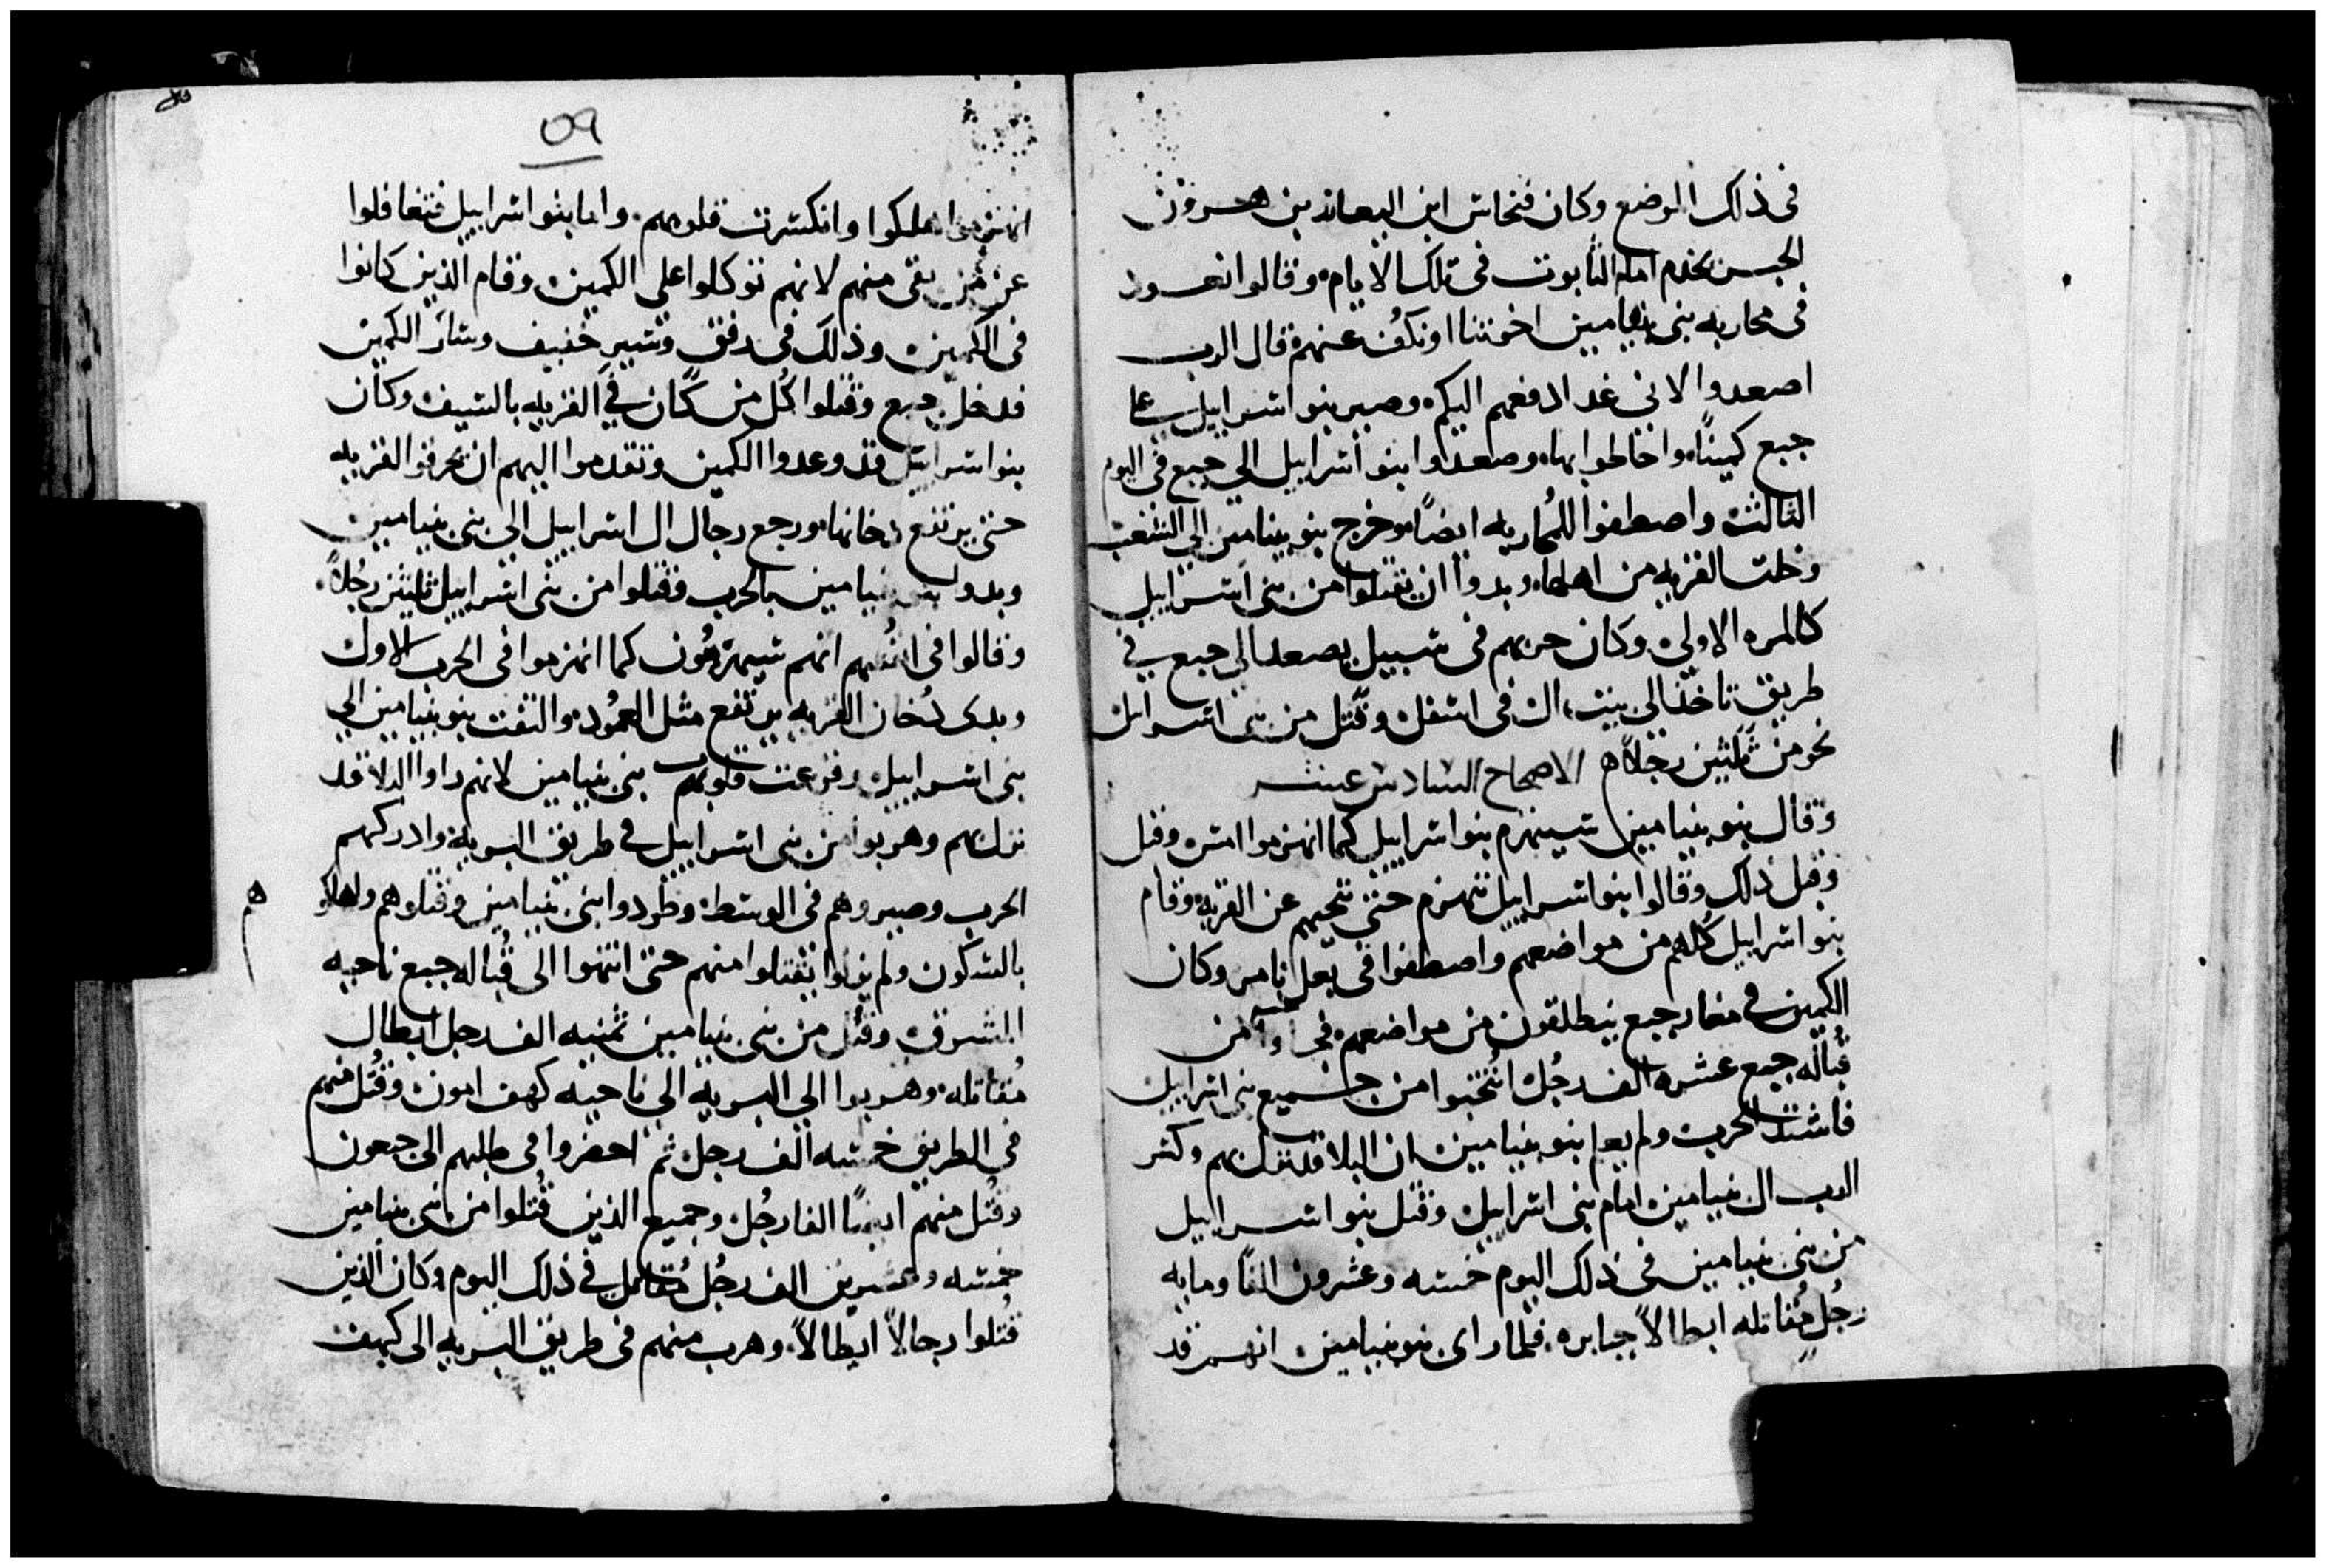 فى ذلك الموضع وكان فنحاس ابن اليعازر بن هرون
الحبر يخدم امام التابوت فى تلك الايام وقالوا نعود
فى محاربه بنى بنيامين اخوتنا او نكف عنهم قال الرب
اصعدوا لانى غدا ادفعهم اليكم وصير بنو اسراييل على
جبع كمينًا واحاطوا بها وصعدوا بنو اسراييل الى جبع فى اليوم
الثالث واصطفوا للمُحاربه ايضًا وخرج بنو بنيامين الى الشعب
وخلت القريه من اهلها وبدوا ان يقتلوا من بنى اسراييل
كالمره الاولى وكان حربهم فى سبيل يصعد الى جبع فى
طريق تاخذ الى بيت ال فى اسفل وقُتل من بنى اسرايل
نحو من ثلثين رجلاً ه الاصحاح السادس عشر
وقال بنو بنيامين سينهزم بنوا سراييل كما انهزموا امس وقبل
وقبل ذلك وقالوا بنوا سراييل ننهزم حتى ننحيهم عن القريه وقام
بنو اسراييل كُلهم من مواضعهم واصطفوا فى بعل تامر وكان
الكمين فى مغار جبع ينطلقون من مواضعهم من
قُباله جبع عشره الف رجُل انُتخبوا من جميع بنى اسراييل
فاشتد الحرب ولم يعلم بنو بنيامين ان البلا قد نزل بهم وكسر
الرب ال بنيامين امام بنى اسراييل وقتل بنو اسراييل
من بنى بنيامين فى ذلك اليوم خمسه وعشرون الفًا ومايه
رجُل مُقاتله ابطالاً جبابره فلما راى بنو بنيامين انهم قد
٥٩
انهزموا هلكوا وانكسرت قلوبهم واما بنوا سراييل فتغافلوا
عن من بقى منهم لانهم توكلوا على الكمين وقام الذين كانوا
فى الكمين وذلك فى رفق وسير خفيف وسار الكمين
فدخل جبع وقتلوا كُل من كان فى القريه بالسيف وكان
بنوا سراييل قد وعدوا الكمين وتقدموا اليهم ان يحرقوا القريه
حتى يرتفع دخانها ورجع رجال ال اسراييل الى بنى بنيامين
وبدوا بنى بنيامين بالحرب وقتلوا من بنى اسراييل ثلثين رجُلاً
وقالوا فى انفسهم انهم سيهزمُون كما انهزموا فى الحرب الاول
وبدى دُخان القريه يرتفع مثل العمُود والتفت بنو بنيامين الى
بنى اسراييل وفزعت قلوبهم بنى بنيامين لانهم راوا البلا قد
نزل بهم وهربوا من بنى اسراييل فى طريق البريه وادركهم
الحرب وصيروهم فى الوسط وطردوا بنى بنيامين وقتلوهم واهلكو
هم
بالسكون ولم يزلوا يقتلوا منهم حتى انتهوا الى قُباله جبع ناحيه
الشرق وقُتل من بنى بنيامين ثمنيه الف رجل ابطال
مُقاتله وهربوا الى البريه الى ناحيه كهف امون وقُتل منهم
فى الطريق خمسه الف رجل ثم احضروا فى طلبهم الى جعون
وقُتل منهم ايضًا الفا رجُل وجميع الذين قُتلوا من بنى بنيامين
خمسه وعشرين الف رجُل مُقاتل فى ذلك اليوم وكان الذين
قُتلوا رجالاً ابطالاً وهرب منهم فى طريق البريه الى كهف